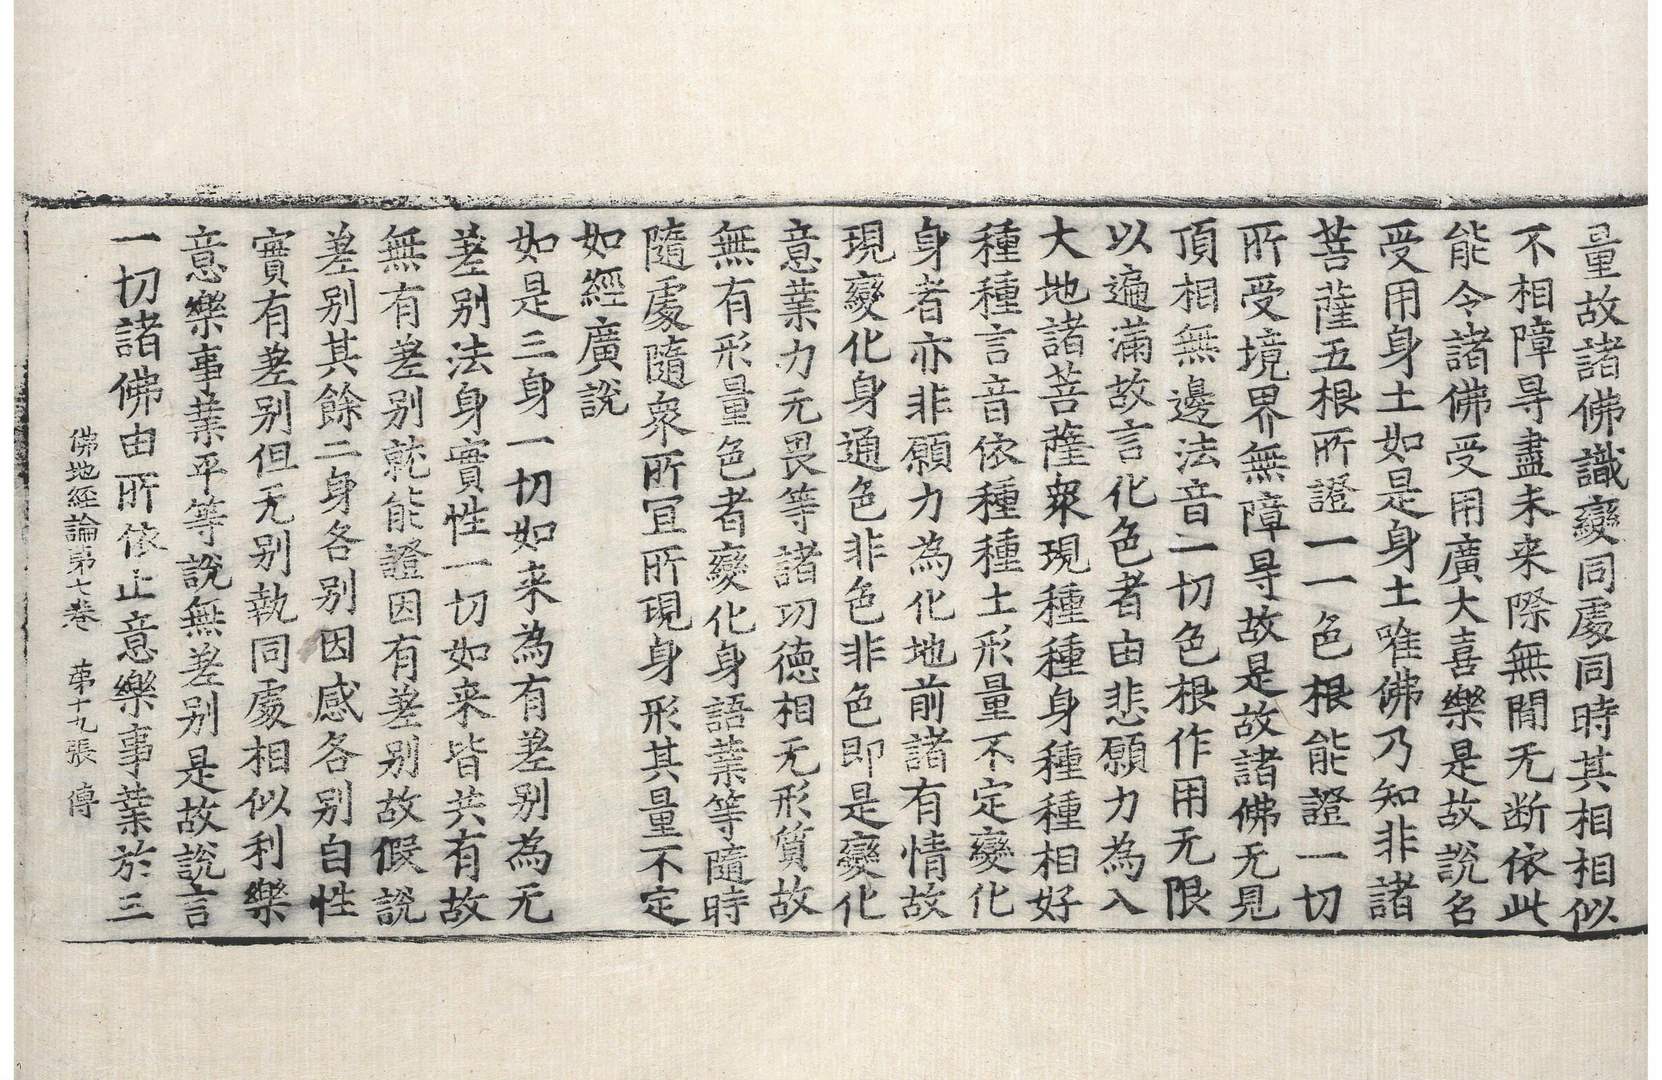 量故諸佛識變同處同時其相相似
不相障㝵盡未来際無閒无断依此
能令諸佛受用廣大喜樂是故說名
受用身土如是身土唯佛乃知非諸
菩薩五根所證一一色根能證一切
所受境界無障㝵故是故諸佛无見
頂相無邊法音一切色根作用无限
以遍滿故言化色者由悲願力為入
大地諸菩薩衆現種種身種種相好
種種言音依種種土形量不定變化
身者亦非願力為化地前諸有情故
現變化身通色非色非色即是變化
意業力无畏等諸功德相无形質故
無有形量色者變化身語業等隨時
隨處隨衆所冝所現身形其量不定
如經廣說
如是三身一切如来為有差别為无
差别法身實性一切如来皆共有故
無有差别就能證因有差别故假說
差别其餘二身各别因感各别自性
實有差别但无别執同處相似利樂
意樂事業平等說無差别是故說言
一切諸佛由所依止意樂事業於三
佛地經論第七卷 苐十九張 傳